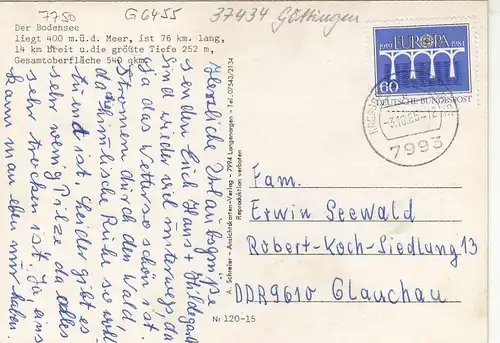 7750
G6455
37434 Göttingen
Der Bodensee
liegt 400 m.ü.d. Meer, ist 76 km. lang,
14 km breit u.die größte Tiefe 252 m,
Gesamtoberfläche 540 qkm
Herzliche Urlaubsgrüße
senden Euch Hans + Hildegard
Sind wieder viel unterwegs, da
ja das Wetter so schön ist.
Stromern durch den Wald,
da die himmlische Ruhe so wohl
tuend ist. Leider gibt es
sehr wenig Pilze da alles
sehr trocken ist. Ja, eins
kann man eben nur haben.
A. Schreier - Ansichtskarten-Verlag - 7994 Langenargen - Tel. 07543/2134
Reproduktion verboten
1959 EUROPA 1984
60
DEUTSCHE BUNDESPOST
7993
Fam.
Erwin Seewald
Robert-Koch-Siedlung 13
DDR 9610 Glauchau
Nr 120-15